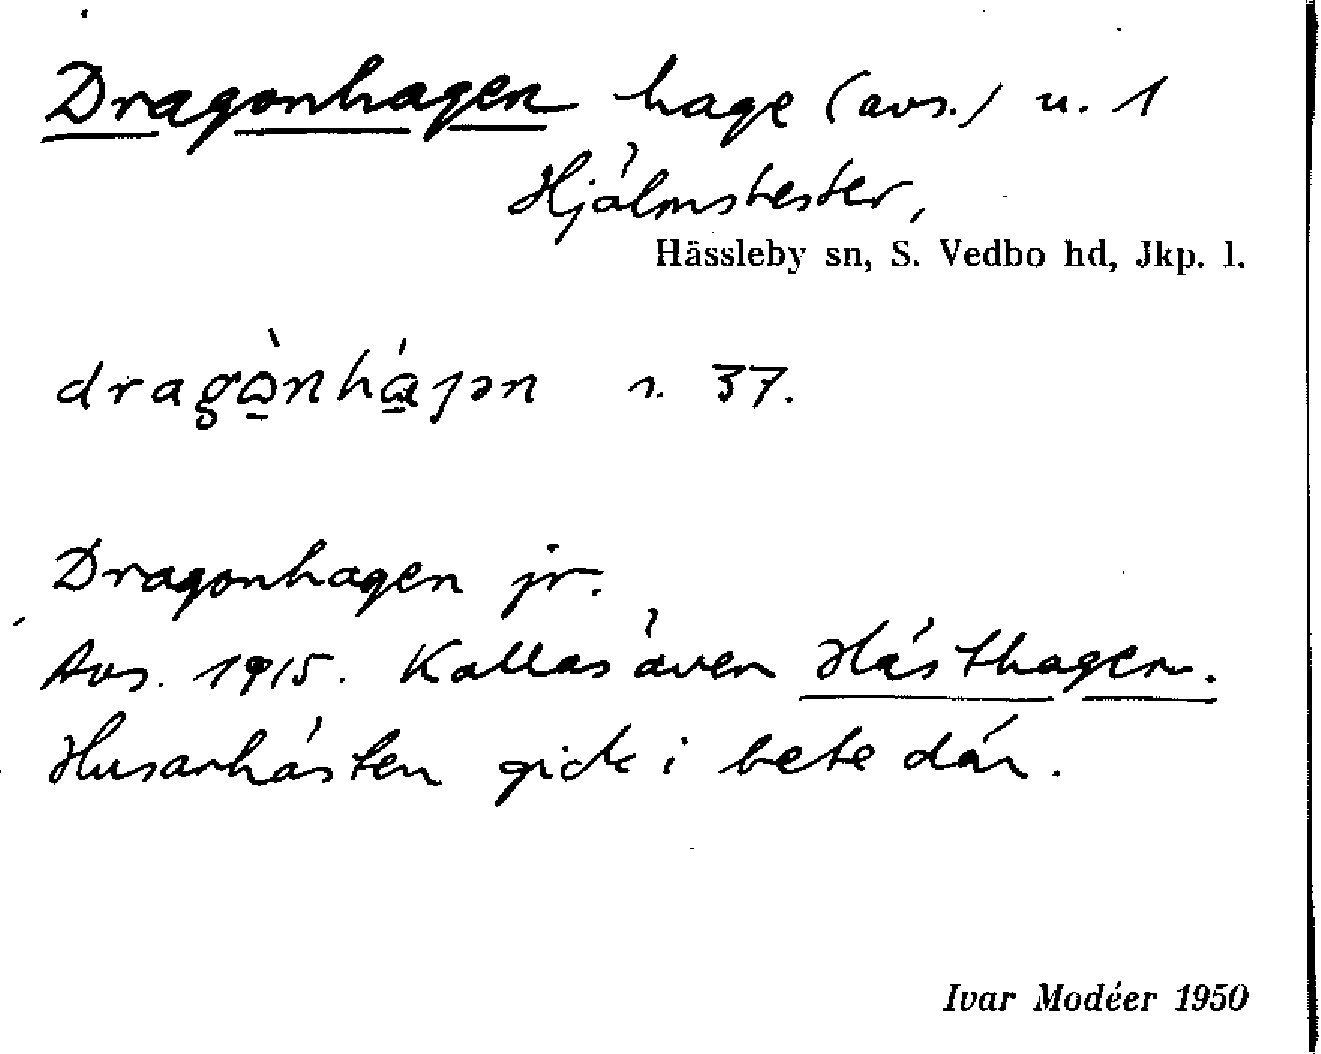 Dragonhagen hage (avs.) u. 1
Hjälmsester,
Hässleby sn, S. Vedbo hd, Jkp. l.
dragò̲nhá̲jən s. 37.
Dragonhagen jr.
Avs. 1915. Kallas även Hästhagen.
Husarhästen gick i bete där.
Ivar Modéer 1950